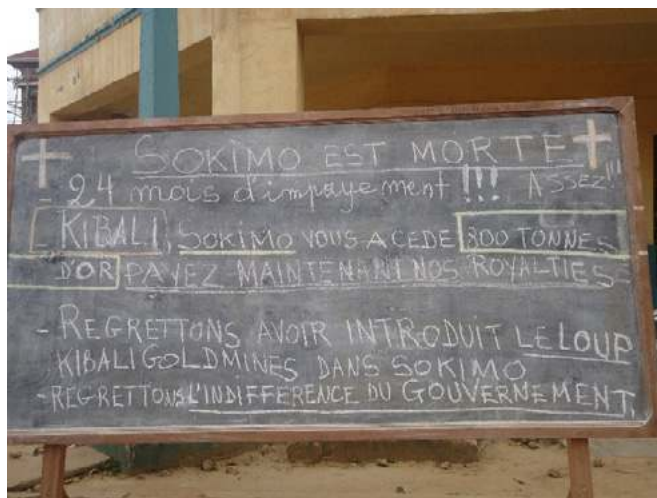 SOKIMO EST MORTE
- 24 mois d'impayement !!! ASSEZ!!!
- KIBALI, SOKIMO VOUS A CEDE 300 TONNES
D'OR PAYEZ MAINTENANT NOS ROYALTIES
- REGRETTONS AVOIR INTRODUIT LE LOUP
KIBALI GOLDMINES DANS SOKIMO
- REGRETTONS L'INDIFFERENCE DU GOUVERNEMENT.